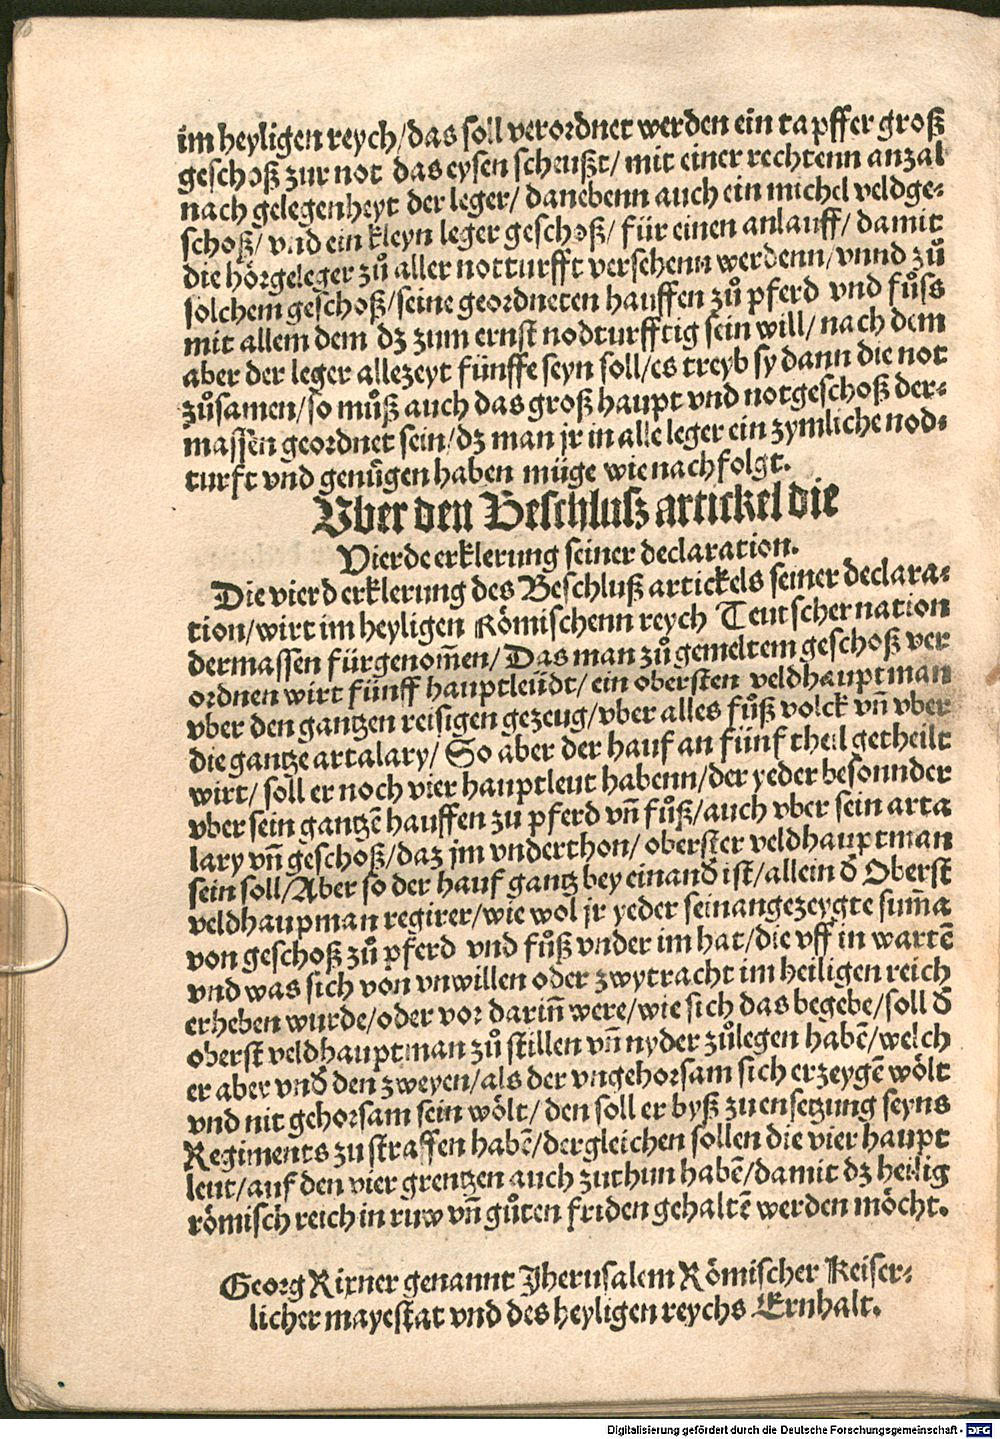 im heyligen reych/das soll verordnet werden ein tapffer groß
geschoß zur not das eysen scheußt/ mit einer rechtenn anzal
nach gelegenheyt der leger/ danebenn auch ein michel veldge⸗
schoß/ vnd ein kleyn leger geschoß/ für einen anlauff/ damit
die hörgeleger zů aller notturfft versehenn werdenn/ vnnd zů
solchem geschoß/seine geordneten hauffen zů pferd vnd fůss
mit allem dem dz zum ernst nodturfftig sein will/ nach dem
aber der leger allezeyt fünffe seyn soll/es treyb sy dann die not
zůsamen/so můß auch das groß haupt vnd notgeschoß der⸗
massen geordnet sein/dz man jr in alle leger ein zymliche nod⸗
turft vnd genůgen haben müge wie nach folgt.
Vber den Beschlusz artickel die
Vierde erklerung seiner declaration.
Die vierd erklerung des Beschluß artickels seiner declara⸗
tion/wirt im heyligen Römischenn reych Teutscher nation
dermassen fürgenom̄en/ Das man zů gemeltem geschoß ver
ordnen wirt fünff hauptleüdt/ ein obersten veldhauptman
vber den gantzen reisigen gezeug/vber alles fůß volck vn̄ vber
die gantze artalary/ So aber der hauf an fünf theil getheilt
wirt/ soll er noch vier hauptleut habenn/der yeder besonnder
vber sein gantzē hauffen zu pferd vn̄ fůß/auch vber sein arta
lary vn̄ geschoß/daz jm vnderthon/ oberster veldhauptman
sein soll/Aber so der hauf gantz bey einand̄ ist/allein d̄ Oberst
veldhaupman regirer/wie wol jr yeder sein angezeygte sum̄a
von geschoß zů pferd vnd fůß vnder im hat/die vff in wartē
vnd was sich von vnwillen oder zwytracht im heiligen reich
erheben wurde/oder vor darin̄ were/wie sich das begebe/soll d̄
oberst veldhauptman zů stillen vn̄ nyder zůlegen habē/welch
er aber vnd̄ den zweyen/als der vngehorsam sich erzeygē wölt
vnd nit gehorsam sein wölt/ den soll er byß zu ensetzung seyns
Regiments zu straffen habē/dergleichen sollen die vier haupt
leut/auf den vier grentzen auch zuthun habē/damit dz heilig
römisch reich in ruw vn̄ gůten friden gehaltē werden möcht.
Georg Rixner genannt Jherusalem Römischer Keiser⸗
licher mayestat vnd des heyligen reychs Ernhalt.
Digitalisierung gefördert durch die Deutsche Forschungsgemeinschaft - DFG